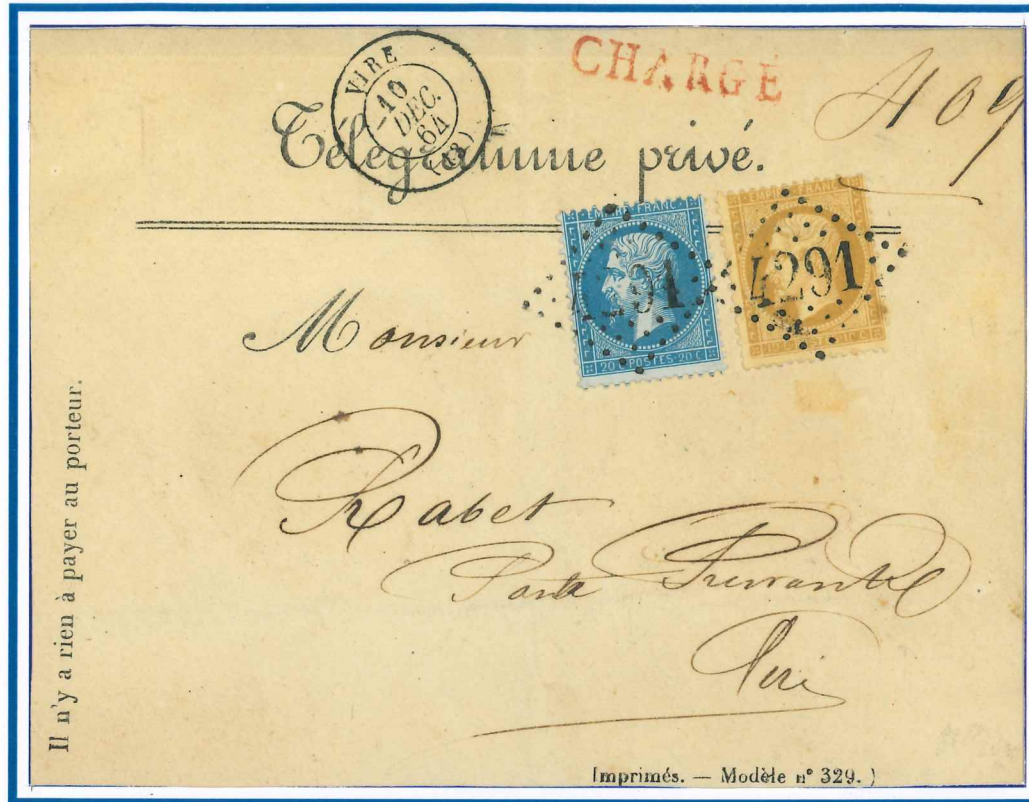 VIRE
10
DEC.
64
(13)
CHARGE
409
Télégramme privé.
EMPIRE FRANC
20 C POSTES 20 C
291
EMPIRE FRANC
4291
Monsieur
Rabet
Porte
Vire
Il n'y a rien à payer au porteur.
Imprimés. — Modèle n° 329. )